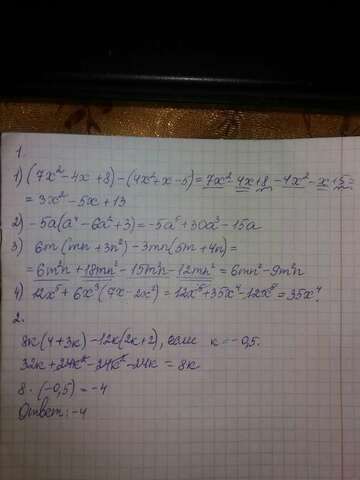 1.
1) (7x² - 4x + 8) - (4x² + x - 5) = 7x² - 4x + 8 - 4x² - x + 5 =
= 3x² - 5x + 13
2) - 5a(a⁴ - 6a² + 3) = -5a⁵ + 30a³ - 15a
3) 6m(mn + 3n²) - 3mn(5m + 4n) =
= 6m²n + 18mn² - 15m²n - 12mn² = 6mn² - 9m²n
4) 12x⁵ + 6x³(7x - 2x²) = 12x⁵ + 35x⁴ - 12x⁵ = 35x⁴.
2.
8к(4 + 3к) - 12к(2к + 2), если к = - 0,5.
32к + 24к² - 24к² - 24к = 8к
8 · (-0,5) = -4
Ответ: -4